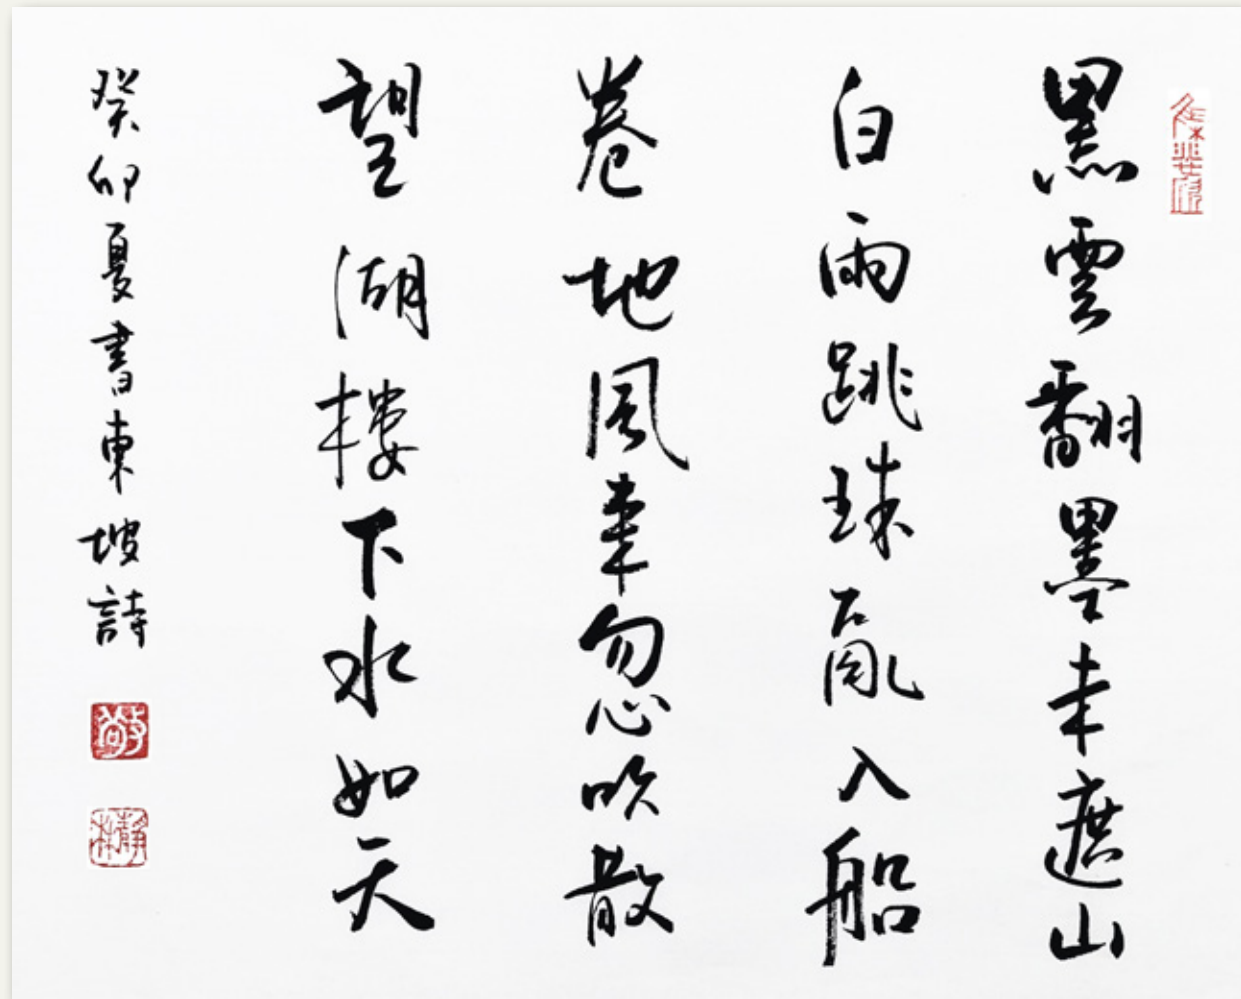 黑雲翻墨未遮山
白雨跳珠亂入船
卷地風來忽吹散
望湖樓下水如天
癸卯夏書東坡詩